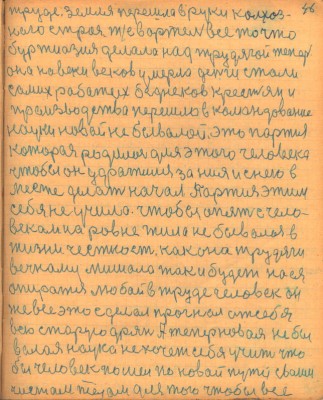 46
труде земля перешла в руки колхоз-
ного строя, т/с в артел все то что
буржuазия делала над трудягой тепер
она вовеки веков умерла дети стали
самих рабочих бедняков крестян и
производства перешло в командование
науки новай не бывалой, это партия
которая родилася для этого человека
чтобы он ударился за ния и с нею в
месте делат начал Партия этим
себя не учила. чтобы опят с чело-
веком на ровне жила не бывалоя в
жизни честност, как она трудяги
вечному мишала так и будет на ся
опиратся любой в труде человек он
же все это сделал прогнал от себя
всю старую дрян А тепер новая не бы
валая наука не хочет себя учит что
бы человек пошел по новой пути своим
чистам телам для того чтобы все